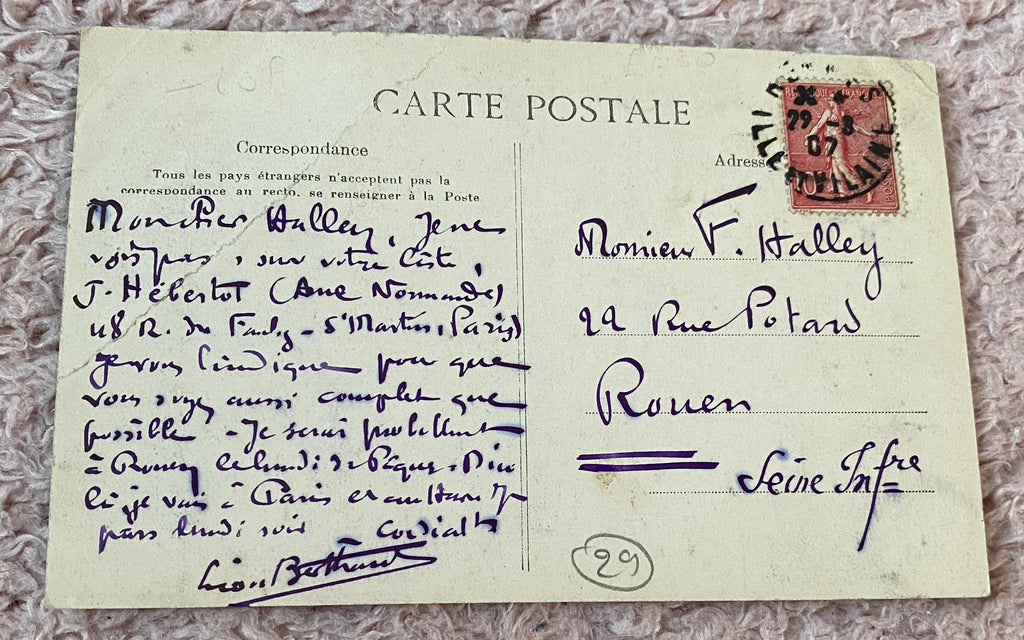 CARTE POSTALE
Correspondance
Tous les pays étrangers n'acceptent pas la
correspondance au recto. se renseigner à la Poste
Mon cher Halley, Je ne
vois pas, sur votre liste,
J. Hébertot (Ame Normande)
48 R. du Faubg - St Martin, Paris)
Je vous l'indique pour que
vous soyez aussi complet que
possible - Je serai probablmt
à Rouen le lundi de Pâques. D'ici
là je vais à Paris et
pars lundi soir Cordialt
Léon Berthaut
Adresse
RÉPUBLIQUE FRANÇAISE
10
POSTES
29 -3
07
ILLE ET VILAINE
Monsieur F. Halley
29 Rue Potard
Rouen
Seine Infre
29